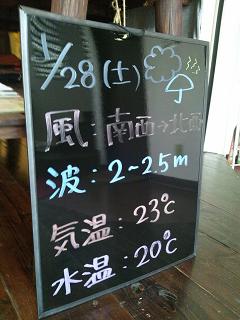 1/28(土)
風:南西→北西
波:2~2.5m
気温:23℃
水温:20℃